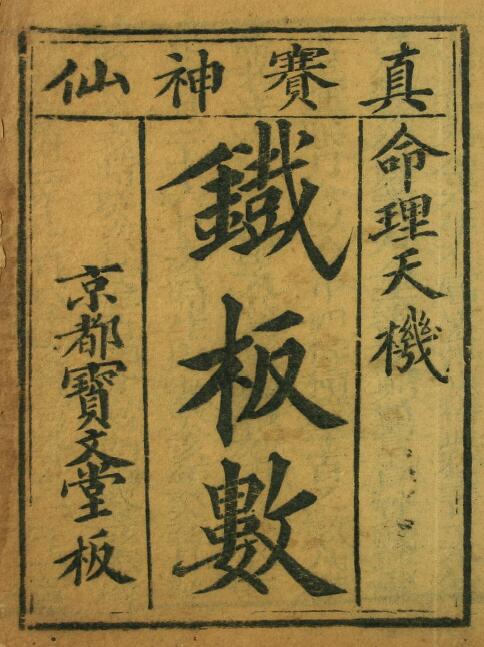 真賽神仙
命理天機
鐵板數
京都寳文堂板